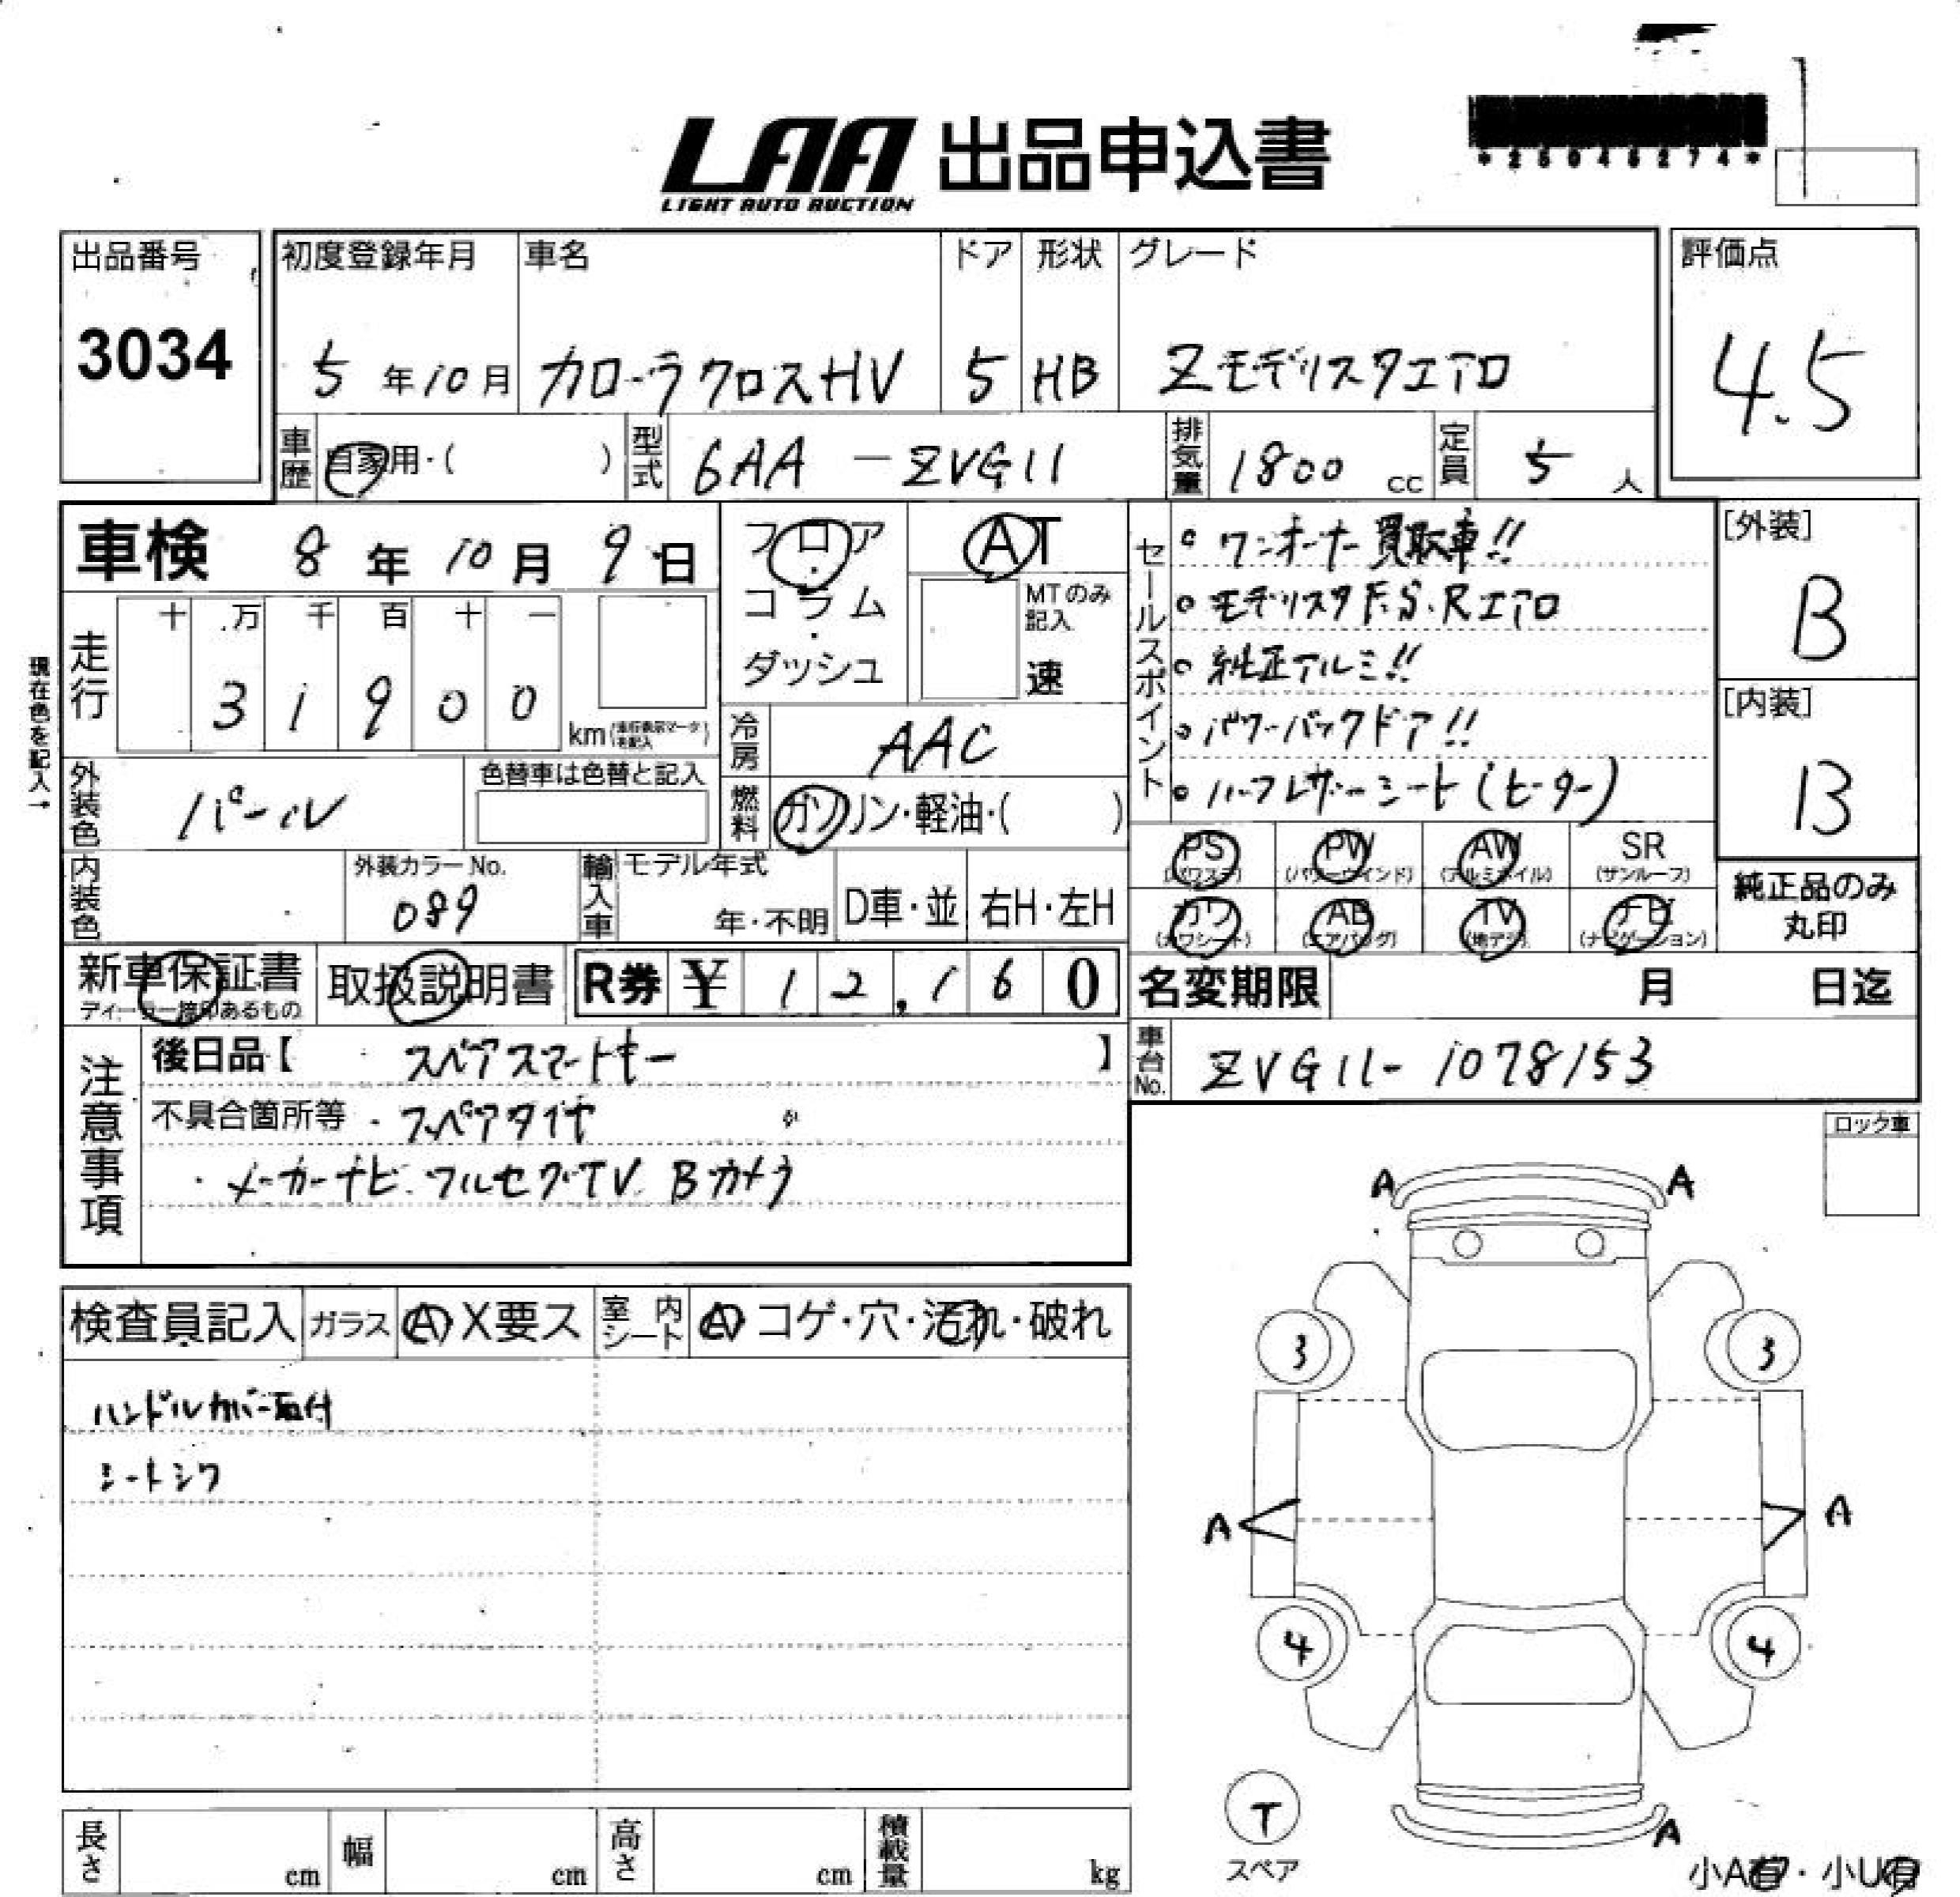 LAA 出品申込書
LIGHT AUTO AUCTION
*25048274*
出品番号
3034
初度登録年月
5年10月
車名
カローラクロスHV
ドア
5
形状
HB
グレード
Zモデリスタエアロ
評価点
4.5
車歴
自家用・( )
型式
6AA-ZVG11
排気量
1800cc
定員
5人
車検 8年10月9日
現在色を記入→
走行
十 万 千 百 十 一
3 1 9 0 0
km(走行表示マークを記入)
フロア・コラム・ダッシュ
AT
MTのみ記入
速
冷房
AAC
燃料
ガソリン・軽油・( )
外装色
パール
色替車は色替と記入
内装色
外装カラーNo.
089
輸入車
モデル年式
年・不明
D車・並
右H・左H
セールスポイント
。ワンオーナー買取車!!
。モデリスタF.S.Rエアロ
。純正アルミ!!
。パワーバックドア!!
。ハーフレザーシート(ヒーター)
[外装]
B
[内装]
B
PS
(パワステ)
PW
(パワーウィンド)
AW
(アルミホイル)
SR
(サンルーフ)
カワ
(カワシート)
AB
(エアバッグ)
TV
(地デジ)
ナビ
(ナビゲーション)
純正品のみ
丸印
新車保証書
ディーラー捺印あるもの
取扱説明書
R券 ¥ 12,160
名変期限 月 日迄
車台No.
ZVG11-1078153
注意事項
後日品【 スペアスマートキー 】
不具合箇所等・スペアタイヤ
・メーカーナビ.フルセグTV Bカメラ
ロック車
検査員記入
ガラス
A X要ス
室内シート
A コゲ・穴・汚れ・破れ
ハンドルカバー取付
シートシワ
A A
3 3
A A
4 4
T
スペア
A
小A有・小U有
長さ cm
幅 cm
高さ cm
積載量 kg